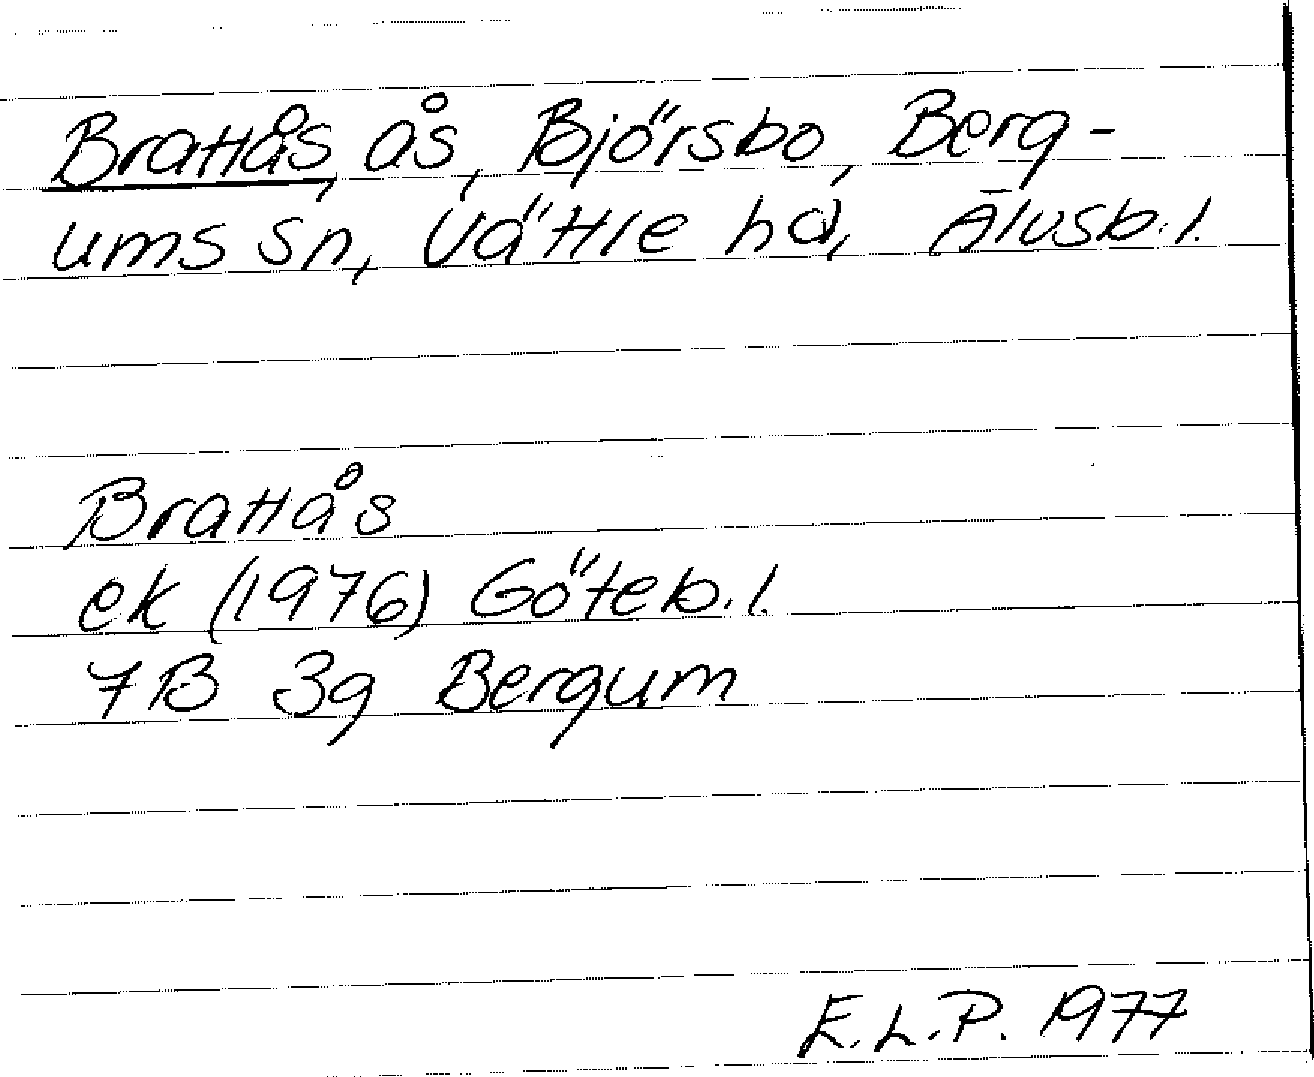 Brattås, ås, Björsbo, Berg-
ums sn, Vättle hd, Älvsb. l.
Brattås
ek (1976) Göteb. l.
7B 3g Bergum
E.L.P. 1977